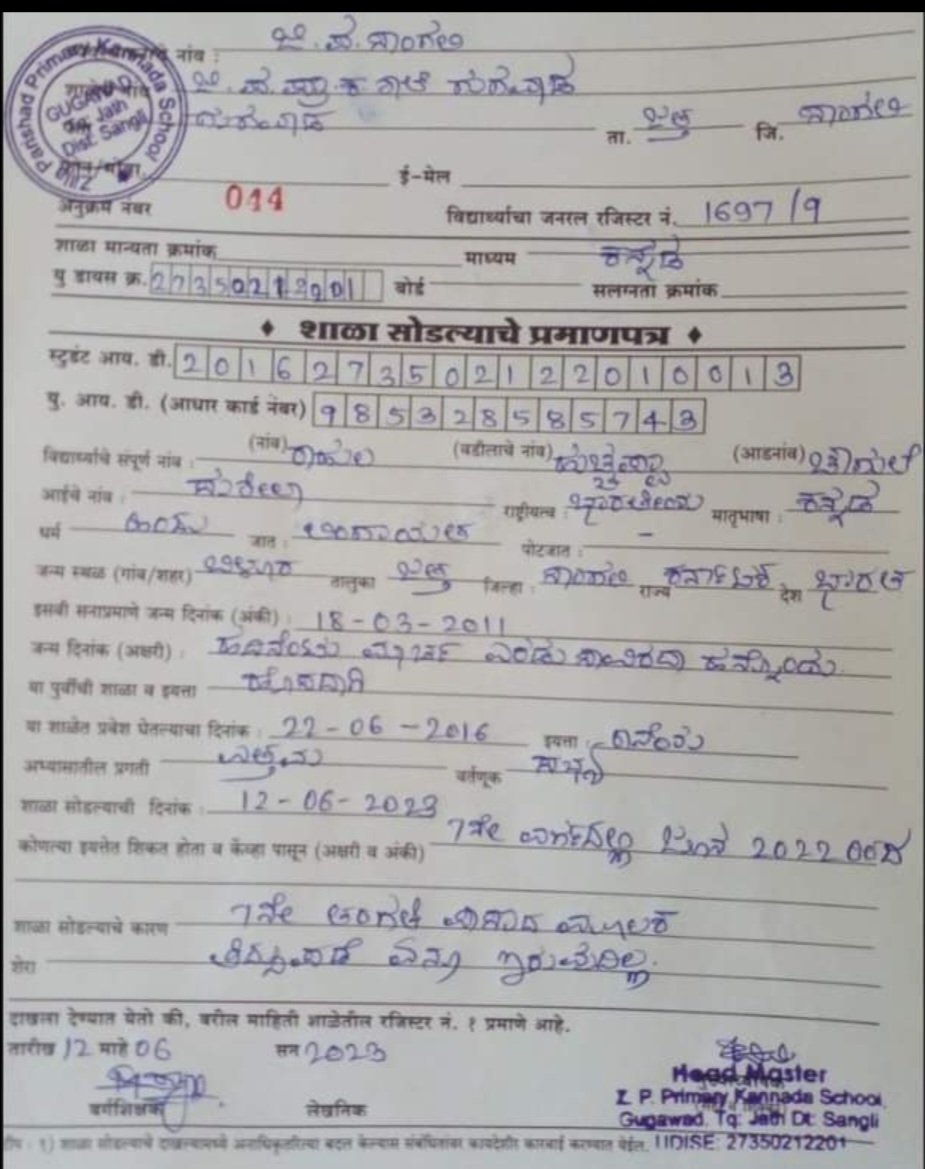 नांव : ಜಿ. ಪ. ಸಾಂಗಲಿ
ಜಿ. ಪ. ಪ್ರಾ. ಕ. ಶಾಲೆ ಗುಗವಾಡ
ಗುಗವಾಡ ता. ಜತ್ತ जि. ಸಾಂಗಲಿ
Zilla Parishad Primary Kannada School
GUGAWAD
Tq. Jath
Dist. Sangli
ई-मेल
अनुक्रम नंबर 044 विद्यार्थ्याचा जनरल रजिस्टर नं. 1697/9
शाळा मान्यता क्रमांक माध्यम ಕನ್ನಡ
यु डायस क्र. 27350212201 बोर्ड सलग्नता क्रमांक
♦ शाळा सोडल्याचे प्रमाणपत्र ♦
स्टुडंट आय. डी. 2016273502122010013
यु. आय. डी. (आधार कार्ड नंबर) 985328585743
विद्यार्थ्याचे संपूर्ण नांव : (नांव) (वडीलाचे नांव) (आडनांव)
आईचे नांव : राष्ट्रीयत्व : ಭಾರತೀಯ मातृभाषा : ಕನ್ನಡ
धर्म ಹಿಂದು जात : ಲಿಂಗಾಯತ पोटजात : -
जन्म स्थळ (गांव/शहर) तालुका ಜತ್ತ जिल्हा : ಸಾಂಗಲಿ राज्य ಕರ್ನಾಟಕ देश ಭಾರತ
इसवी सनाप्रमाणे जन्म दिनांक (अंकी) : 18-03-2011
जन्म दिनांक (अक्षरी) : ಹದಿನೆಂಟು ಮಾರ್ಚ ಎರಡು ಸಾವಿರದಾ ಹನ್ನೊಂದು
या पुर्वीची शाळा व इयत्ता ಹೊಸದಾಗಿ
या शाळेत प्रवेश घेतल्याचा दिनांक : 22-06-2016 इयत्ता : 1ನೆಯ
अभ्यासातील प्रगती ಉತ್ತಮ वर्तणूक
शाळा सोडल्याची दिनांक : 12-06-2023
कोणत्या इयत्तेत शिकत होता व केंव्हा पासून (अक्षरी व अंकी) 7ನೇ ವರ್ಗದಲ್ಲಿ ಜೂನ 2022 ರಿಂದ
शाळा सोडल्याचे कारण 7ನೇ ತರಗತಿ ಪಾಸಾದ ಮೂಲಕ
शेरा ವರ್ಗ ಇರುವುದಿಲ್ಲ.
दाखला देण्यात येतो की, वरील माहिती शाळेतील रजिस्टर नं. १ प्रमाणे आहे.
तारीख 12 माहे 06 सन 2023
वर्गशिक्षक लेखनिक
Head Master
Z. P. Primary Kannada School
Gugawad, Tq: Jath Dt: Sangli
UDISE: 27350212201
टीप : १) शाळा सोडल्याचे दाखल्यामध्ये अनाधिकृतरित्या बदल केल्यास संबंधितांवर कायदेशीर कारवाई करण्यात येईल.